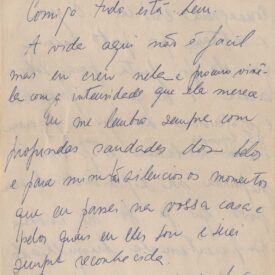 Comigo tudo está bem.
A vida aqui não é facil
mas eu creio nela e procuro vivê-
la com a intensidade que ela merece
Eu me lembro sempre com
profundas saudades dos belos
e para mim silenciosos momentos
que eu passei na vossa casa e
pelos quais eu lhes sou e serei
sempre reconhecida.